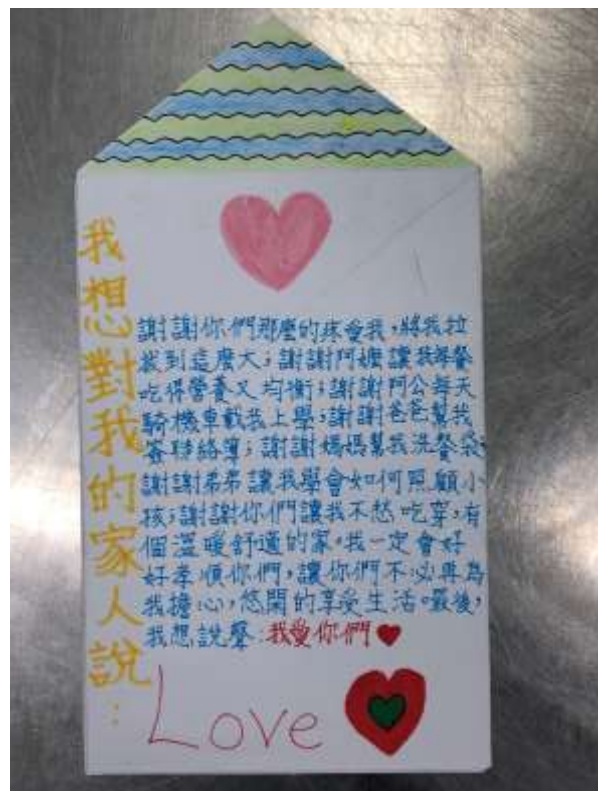 我想對我的家人說：
謝謝你們那麼的疼愛我，將我拉
拔到這麼大；謝謝阿嬤讓我每餐
吃得營養又均衡；謝謝阿公每天
騎機車載我上學；謝謝爸爸幫我
簽聯絡簿；謝謝媽媽幫我洗餐袋；
謝謝弟弟讓我學會如何照顧小
孩；謝謝你們讓我不愁吃穿，有
個溫暖舒適的家。我一定會好
好孝順你們，讓你們不必再為
我擔心，悠閒的享受生活。最後，
我想說聲：我愛你們
Love